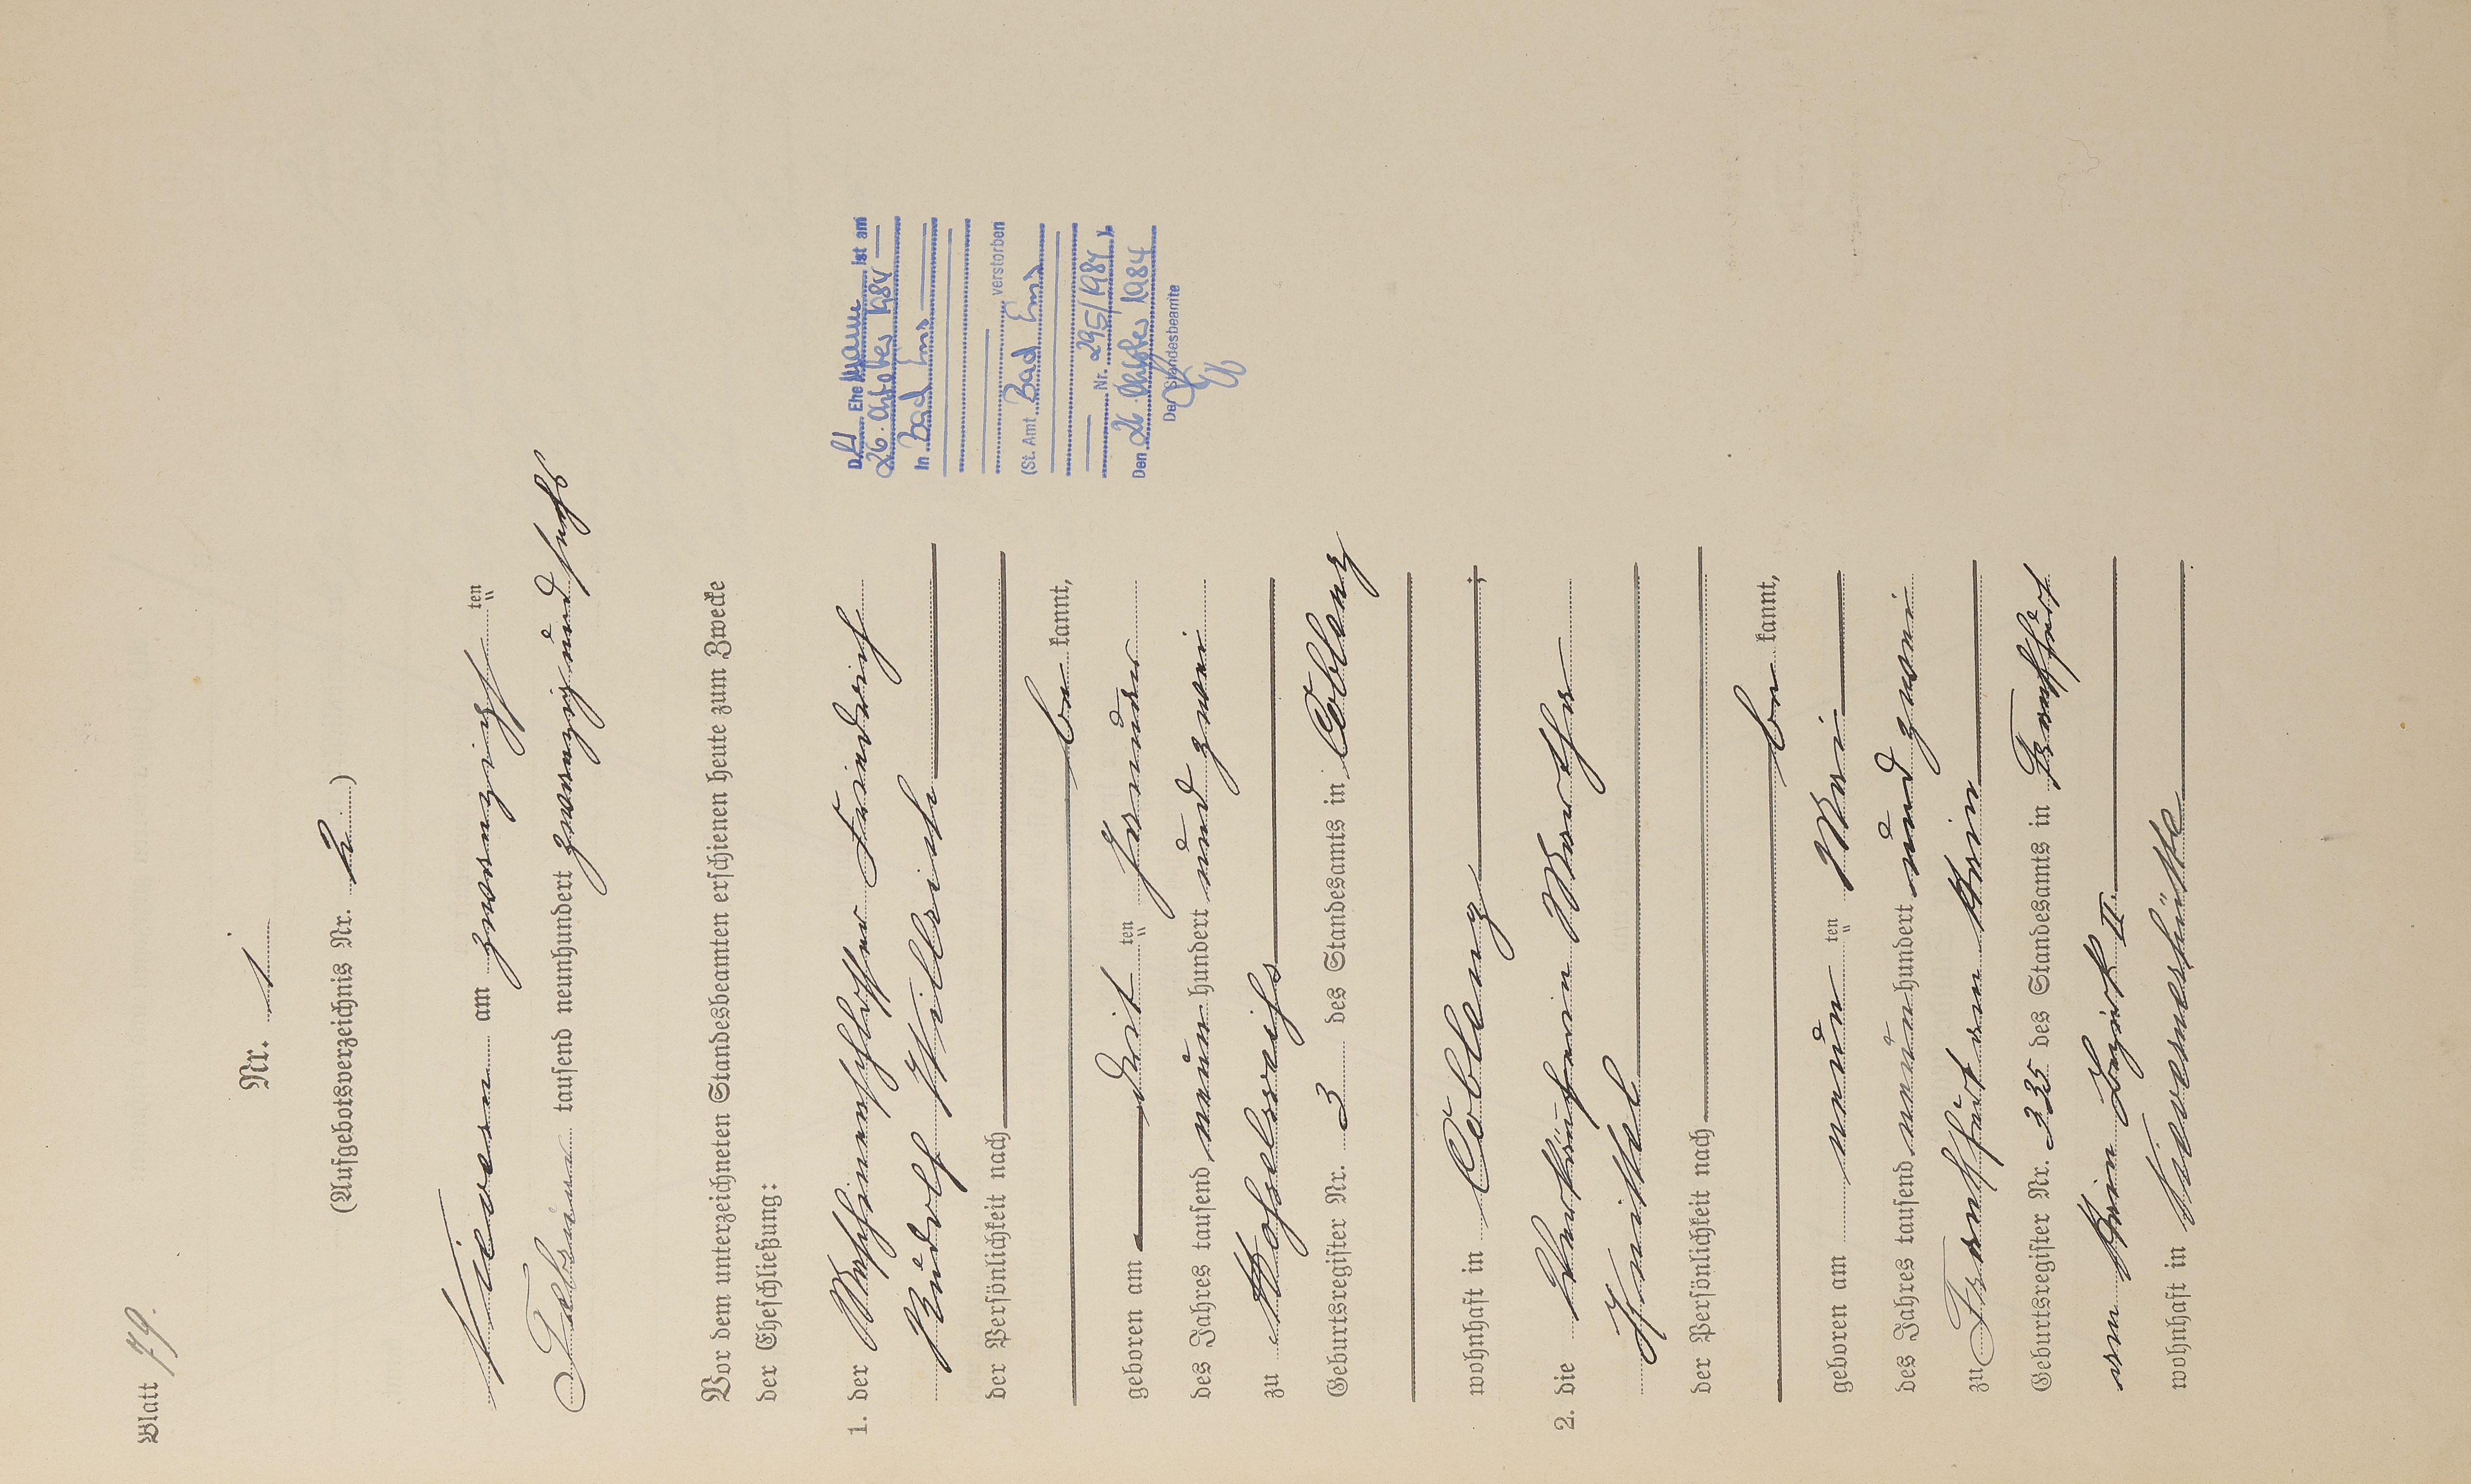 Blatt 79.
Nr. 1
(Aufgebotsverzeichnis Nr. 2)
Nievern am zwanzigsten
Februar tausend neunhundert zwanzig und sechs
Vor dem unterzeichneten Standesbeamten erschienen heute zum Zwecke
der Eheschließung:
1. der Maschinenschlosser Friedrich
Rudolf
der Persönlichkeit nach
be kannt,
geboren am drit ten Januar
des Jahres tausend neun hundert und zwei
zu Moselweiß
Geburtsregister Nr. 3 des Standesamts in Coblenz
wohnhaft in Coblenz;
2. die Verkäuferin Martha
der Persönlichkeit nach
be kannt,
geboren am neun ten Mai
des Jahres tausend neun hundert und zwei
zu Frankfurt am Main
Geburtsregister Nr. 335 des Standesamts in Frankfurt
am Main Bezirk II.
wohnhaft in Nievernerhütte
D er Ehe Mann ist am
26. Oktober 1984
In Bad Ems
verstorben
(St. Amt Bad Ems
Nr. 295/1984)
Den 26. Oktober 1984
Der Standesbeamte